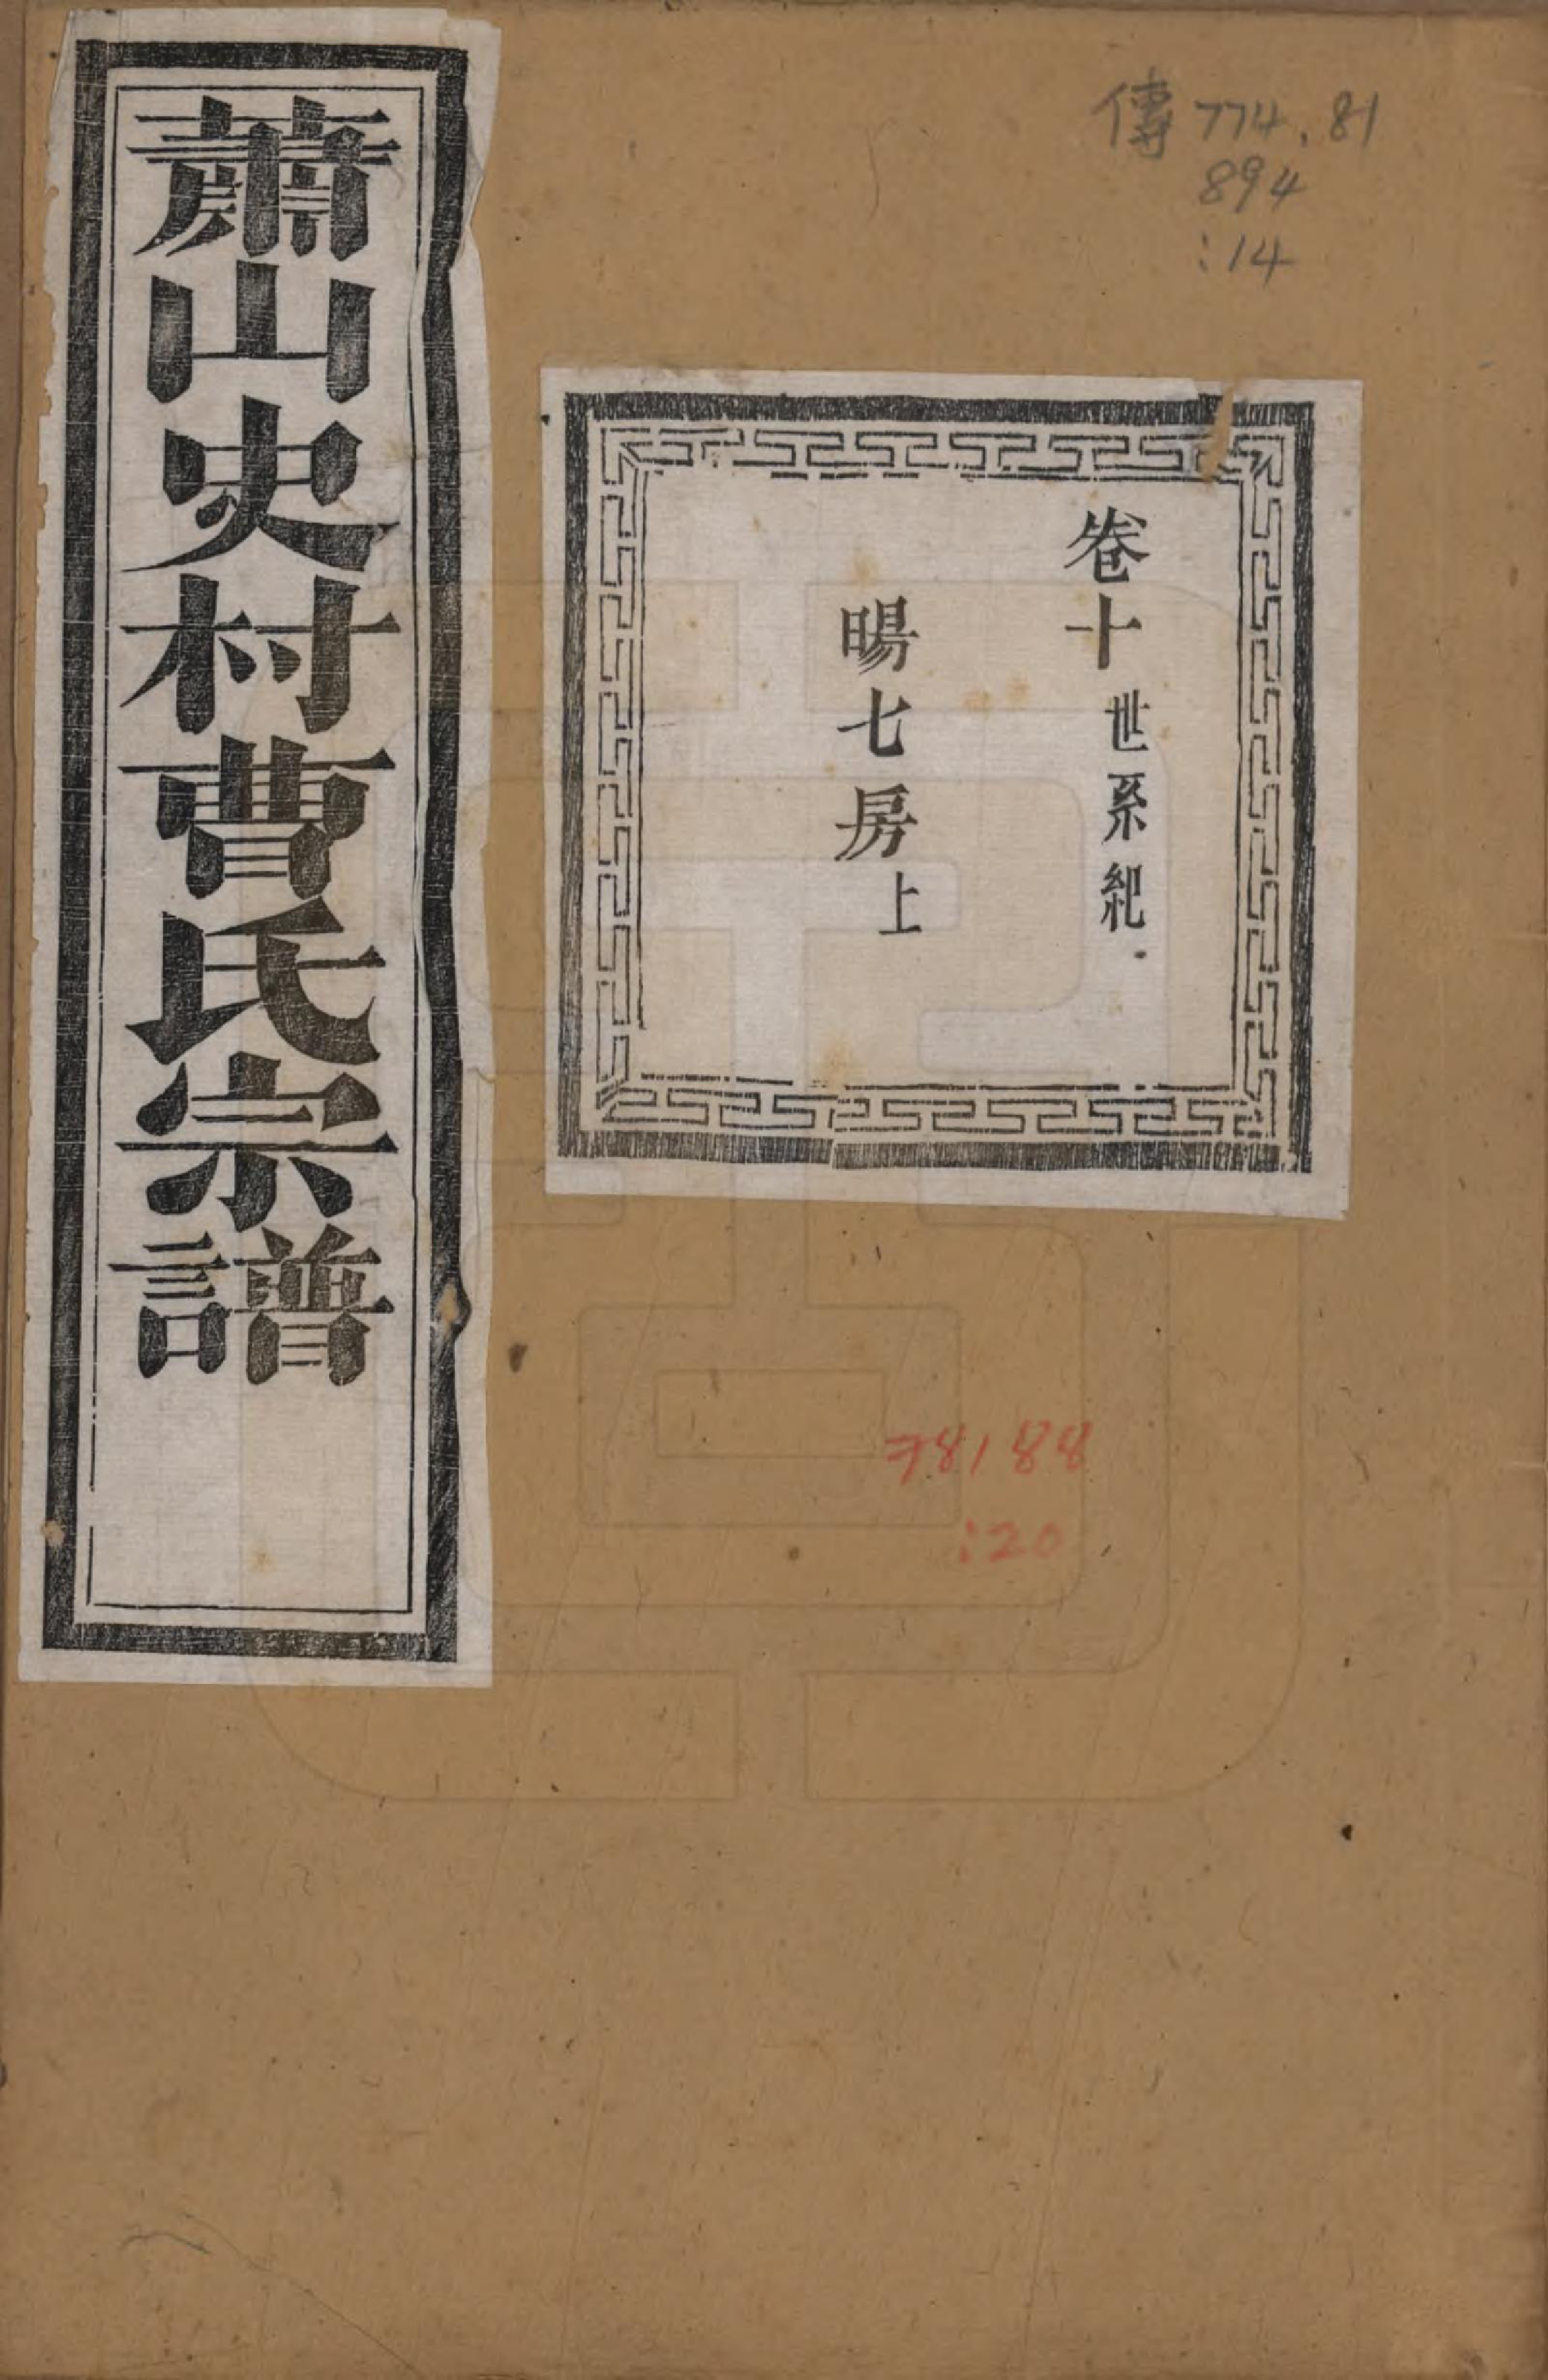 傳 774.81
894
:14
卷十世系紀
暘七房上
蕭山史村曹氏宗譜
78188
:20